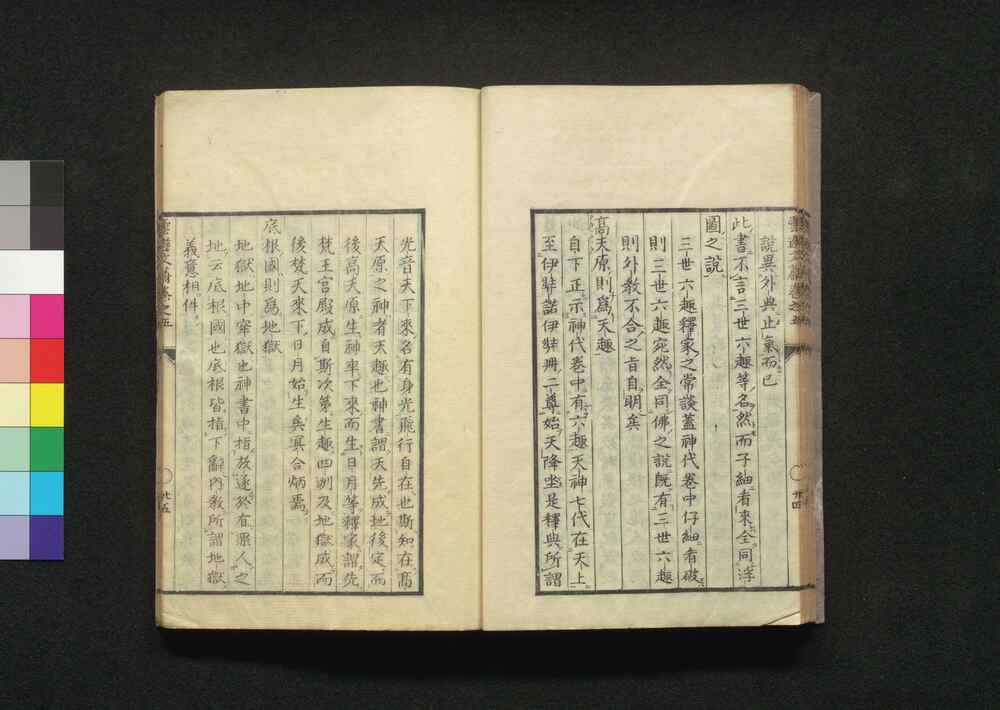 說異外典止氣而已
此書不言三世六趣等名然而子細看來全同浮
圖之說
三世六趣釋家之常談蓋神代卷中仔細看破
則三世六趣宛然全同佛之說既有三世六趣
則外教不合之旨自明矣
高天原則爲天趣
自下正示神代卷中有六趣天神七代在天上
至伊弉諾伊弉冊二尊始天降坐是釋典所謂
卅四
光音天下來名有身光飛行自在也斯知在高
天原之神者天趣也神書謂天先成地後定而
後高天原生神率下來而生日月等釋家謂先
梵王宮殿成自斯次第生趣四洲及地獄成而
後梵天來下日月始生矣冥合炳焉
底根國則爲地獄
地獄地中牢獄也神書中指故逐於有罪人之
地云底根國也底根皆指下辭內教所謂地獄
義意相件
卷之五
廿五